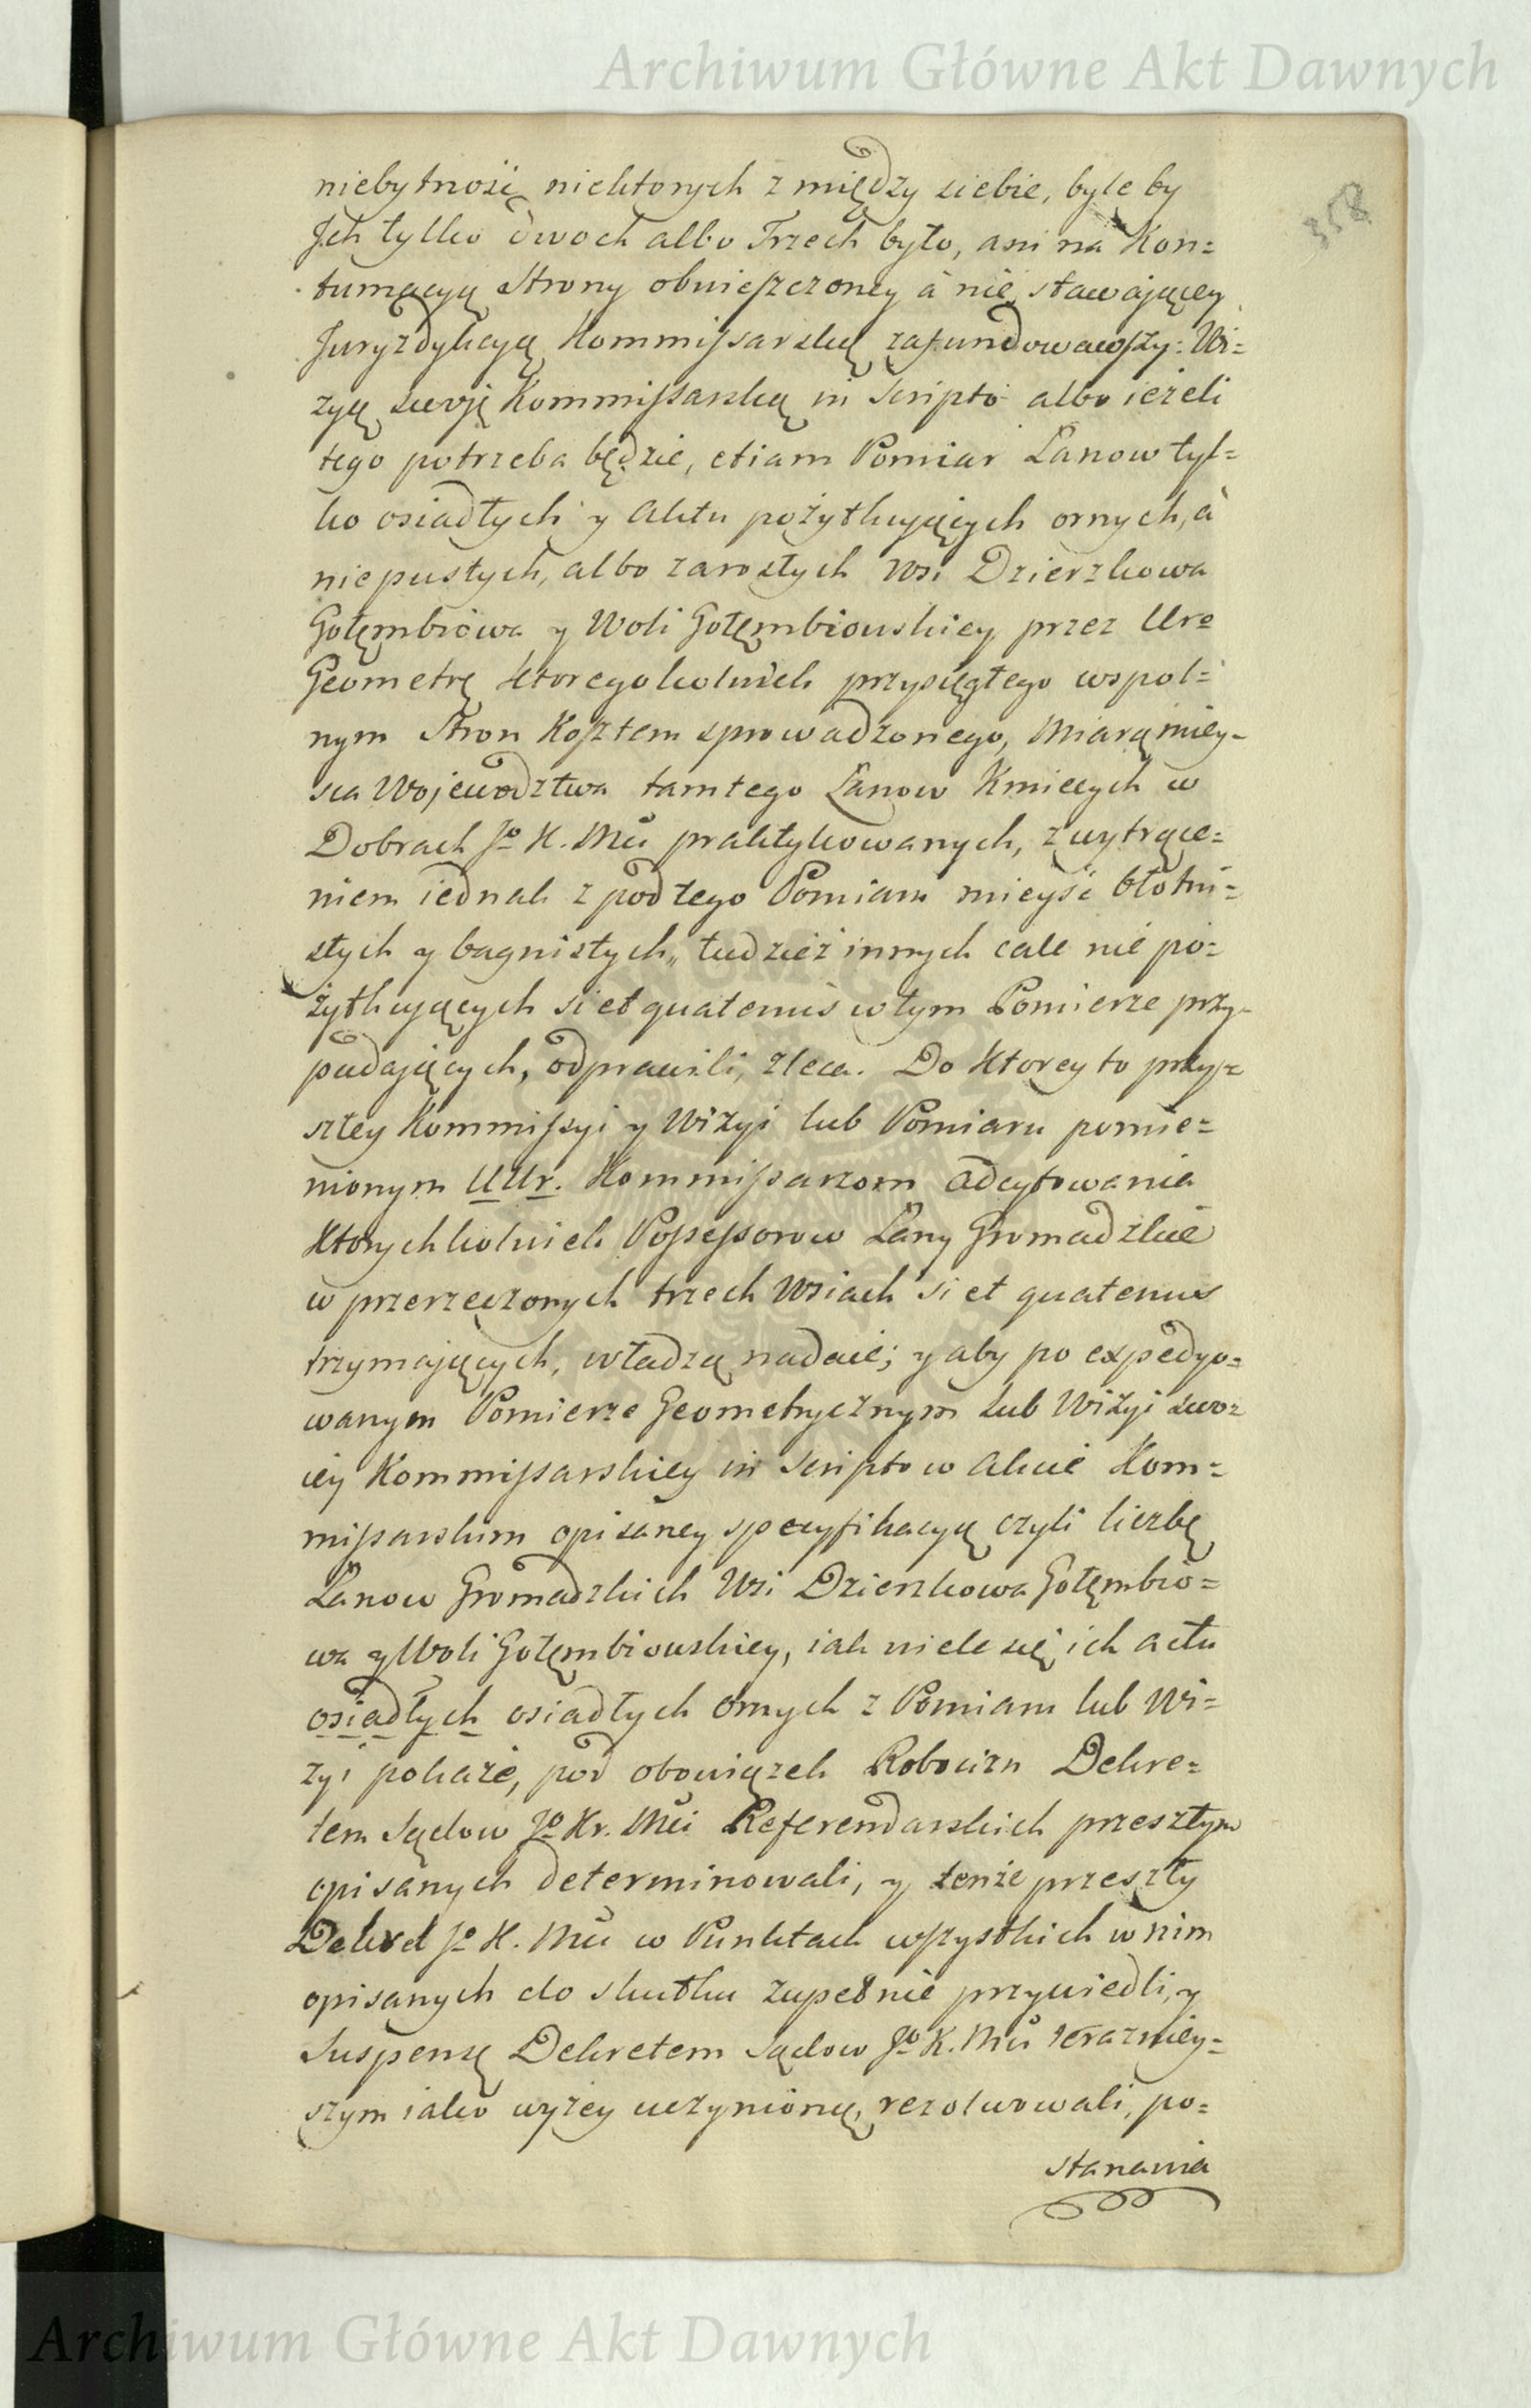 Archiwum Główne Akt Dawnych
358
niebytność niektorych z między siebie, byle by
Jch tylko dwoch albo Trzech było, ani na Kon=
tumącyą Strony obwieszczoney à nie stawaiącey
Juryzdykcyą Kommissarską zafundowawszy: Wi=
zyą swoję Kommissarską in Scripto albo ieżeli
tego potrzeba będzie, etiam Pomiar Łanow tyl=
ko osiadłych y aktu pożytkuiących ornych, à
niepustych, albo zarosłych Wsi Dzierzkowa
Gołęmbiowa y Woli Gołęmbiowskiey przez Uro
Geometrę ktoregokolwiek przysięgłego wspol=
nym Stron Kosztem sprowadzonego, Miarą miey=
sca Wojewodztwa tamtego Łanow Kmiecych w
Dobrach Jo K. Mci praktykowanych, z wytrące=
niem iednak z pod tego Pomiaru mieysc błotni=
stych y bagnistych, tudzież innych cale nie po=
żytkuiących si et quatenus w tym Pomierze przy=
padaiących, odprawili, zleca. Do ktorey to przy=
szłey Kommissyi y Wizyi lub Pomiaru pomie=
nionym UUr. Kommissarzom adcytowania
ktorychkolwiek Possessorow Łany Gromadzkie
w przerzeczonych trzech Wsiach si et quatenus
trzymaiących, władzą nadaie; y aby po expedyo=
wanym Pomierze Geometrycznym lub Wizyi swo=
iey Kommissarskiey in Scripto w Akcie Kom=
missarskim opisaney specyfikacyą czyli liczbę
Łanow Gromadzkich Wsi Dzierzkowa Gołęmbio=
wa y Woli Gołęmbiowskiey, iak wiele się ich actu
osiadłych osiadłych ornych z Pomiaru lub Wi=
zyi pokaże, pod obowiązek Robocizn Dekre=
tem Sądow Jo Kr. Mci Referendarskich przeszłym
opisanych determinowali, y tenże przeszły
Dekret Jo K. Mci w Punktach wszystkich w nim
opisanych do skutku zupełnie przywiedli, y
Suspensę Dekretem Sądow Jo K. Mci terazniey=
szym iako wyżey uczynioną, rezolwowali, po=
stanawia
Archiwum Główne Akt Dawnych